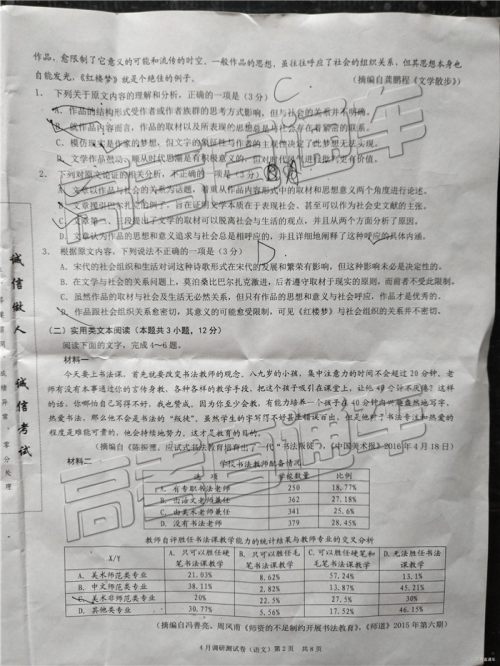 作品，愈限制了它意义的可能和流传的时空。一般作品的思想，虽往往呼应了社会的组织关系，但其思想本身也
自能发光，《红楼梦》就是个绝佳的例子。
（摘编自龚鹏程《文学散步》）
1. 下列关于原文内容的理解和分析，正确的一项是（3分）
C
A. 作品的结构形式受作者或作者族群的思考方式影响，但与社会的关系并不明确。
B. 就作品内容而言，作品的取材以及所表现的思想总是与社会存在着紧密的联系。
C. 模仿现实是作家的梦想，但文字的象征性与作者的主观性决定了此梦想无从实现。
D. 文学作品
2. 下列对原文论证的相关分析，不正确的一项是（3分）
A. 文章以作品与社会的关系为话题，着重从作品内容形式中的取材和思想意义两个角度进行论述。
B. 文章援引巴尔扎克的例子，旨在证明文学本质在于表现社会，甚至可以作为社会史文献的主张。
C. 文章第二、三段提出了文学的取材可以脱离社会与生活的观点，并且从两个方面分析了原因。
D. 文章认为作品的思想意义追求与社会总是相呼应的，并且详细地阐释了这种呼应的具体内涵。
3. 根据原文内容，下列说法不正确的一项是（3分）
D
A. 宋代的社会组织和生活对词这种诗歌形式在宋代的发展和繁荣有影响，但这种影响未必是决定性的。
B. 在文学与社会的关系问题上，莫泊桑比巴尔扎克激进，后者遵守取材于现实的原则，而前者不受此限制。
C. 虽然作品的取材与社会及生活无必然关系，但只有作品的思想意义和社会呼应，作品才是优秀的。
D. 作品跟社会组织关系愈密切，其意义的可能愈受限制，可见《红楼梦》与社会组织的关系并不密切。
（二）实用类文本阅读（本题共3小题，12分）
阅读下面的文字，完成4～6题。
材料一
今天要上书法课，首先就要改变书法教师的观念。八九岁的小孩，集中注意力的时间不会超过20分钟，老
师有没有本事通过你的言传身教、各种各样的教学手段，把这个孩子吸引在课堂上，让他40分钟不厌倦？这样
的话，你哪怕自己写得不好，我也赞成。因为你至少会教，有能力培养一个孩子在40分钟内兴趣盎然地写字，
热爱书法，那么他不会是书法的“叛徒”。虽然学生的字写得不好甚至错误百出，但是他对于书法专注和热爱的
程度是难能可贵的，他会持续地努力，这才是教育的目的。
（摘编自《陈振濂，应试式书法教育培育出了一代“书法叛徒”》，《中国美术报》2016年4月18日）
材料二
学校书法教师配备情况
选 项 学校数量 比例
A. 有专职书法老师 250 18.77%
B. 由语文老师兼任 362 27.18%
C. 由美术老师兼任 341 25.6%
D. 没有书法老师 379 28.45%
教师自评胜任书法课教学能力的统计结果与教师专业的交叉分析
X/Y A. 只可以胜任硬笔书法课教学 B. 只可以胜任毛笔书法课教学 C. 可以胜任硬笔和毛笔书法课教学 D. 无法胜任书法课教学
A. 美术师范类专业 21.03% 8.62% 57.24% 13.1%
B. 中文师范类专业 38.11% 2.82% 13.87% 45.21%
C. 美术非师范类专业 20% 22.5% 27.5% 30%
D. 其他类专业 30.77% 5.56% 17.52% 46.15%
（摘编自冯善亮、周凤甫《师资的不足制约开展书法教育》，《师道》2015年第六期）
4月调研测试卷（语文）第2页 共8页
诚信做人 诚信考试
零分处理
高考直通车
高考直通车